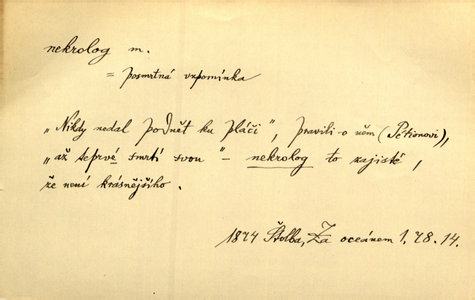 nekrolog m.
= posmrtná vzpomínka
„Nikdy nedal podnět ku pláči", pravili o něm (Pétionovi),
„až teprvé smrtí svou" – nekrolog to zajisté,
že není krásnějšího.
1874 Štolba, Za oceánem 1.78.14.